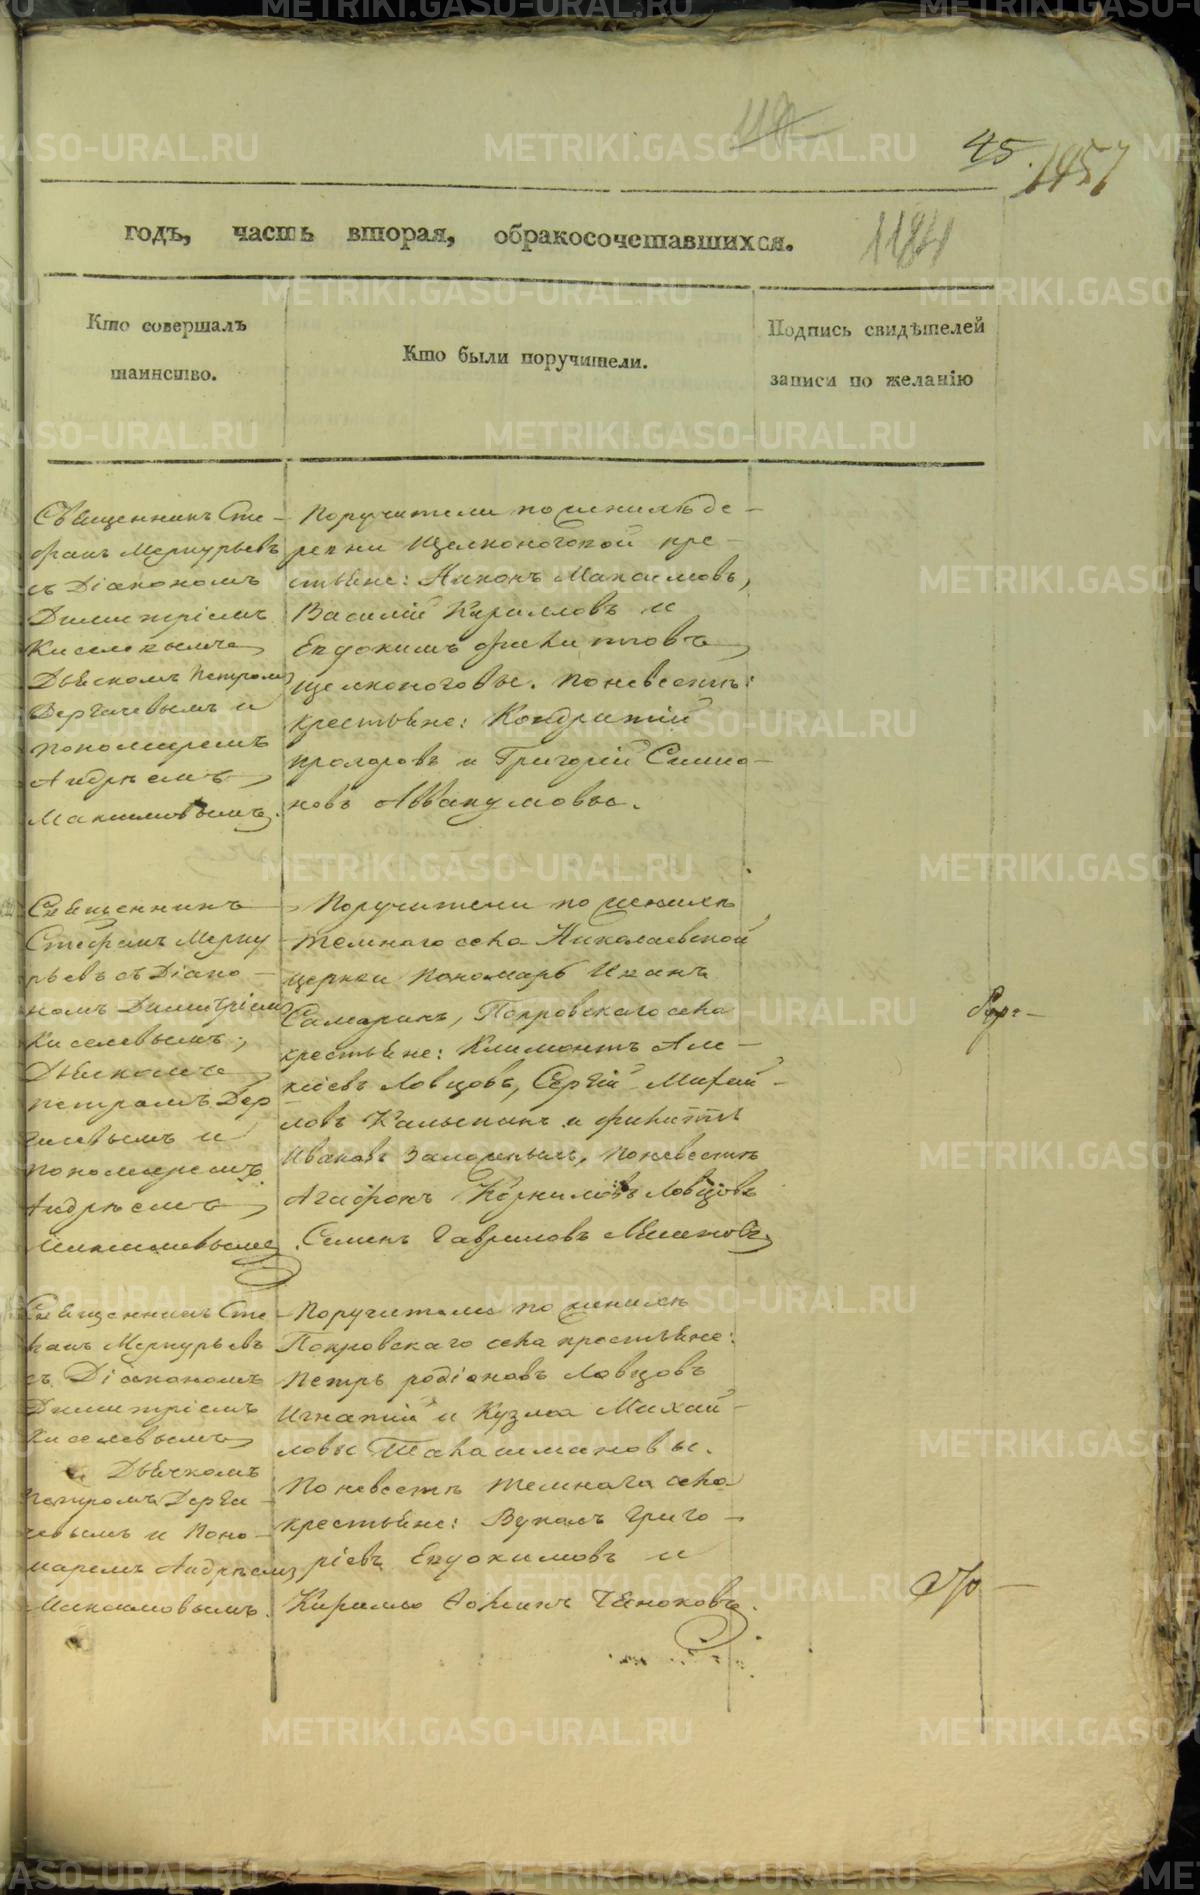 45.
1457
1184
годъ, часть вторая, обракосочетавшихся.
Кто совершалъ
таинство.
Кто были поручители.
Подпись свидѣтелей
записи по желанію
Священникъ Сте-
фанъ Меркурьевъ
съ Діакономъ
Димитріемъ
Киселевымъ
Дьячкомъ Петромъ
Дергачевымъ и
пономаремъ
Андрѣемъ
Максимовымъ.
Поручители по женихѣ де-
ревни Щелконоговой кре-
стьяне: Никонъ Максимовъ,
Василій Кириловъ и
Евдокимъ
Щелконоговы. По невестѣ:
крестьяне: Кондратій
Проворовъ и Григорій Симо-
новъ Аввакумовы.
Священникъ
Стефанъ Мерку
рьевъ съ Діако-
номъ Димитріемъ
Киселевымъ,
Дьячкомъ
Петромъ Дер
гачевымъ и
пономаремъ
Андрѣемъ
Максимовымъ
Поручители по женихѣ
Темнаго села Николаевской
церкви Пономарь Иванъ
Самаринъ, Покровскаго села
крестьяне: Климонтъ Але-
ксіевъ Ловцовъ, Сергій Михай-
ловъ и
Ивановъ По невестѣ
Агафонъ Корниловъ Ловцовъ
Семенъ Гавриловъ
Священникъ Сте
фанъ Меркурьевъ
съ Діакономъ
Димитріемъ
Киселевымъ
Дьячкомъ
Петромъ Дерга-
чевымъ и Поно-
маремъ Андрѣемъ
Максимовымъ.
Поручители по женихѣ
Покровскаго села крестьяне:
Петръ Родіоновъ Ловцовъ
Игнатій и Кузма Михай-
ловы
По невестѣ Темнаго села
крестьяне: Вуколъ Григо-
ріевъ Евдокимовъ и
Кирилъ
METRIKI.GASO-URAL.RU